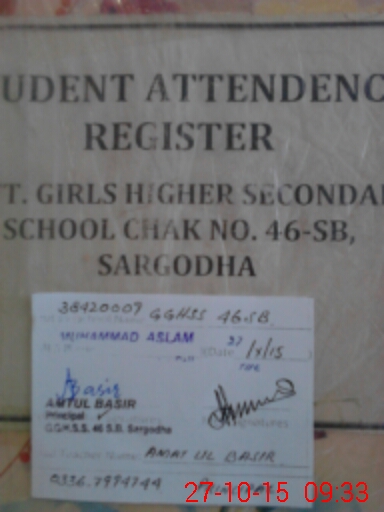 UDENT ATTENDENC
REGISTER
T. GIRLS HIGHER SECONDA
SCHOOL CHAK NO. 46-SB,
SARGODHA
38420007 GGHSS 46.SB.
MUHAMMAD ASLAM
Date 27/X/15
Basir
AMTUL BASIR
Principal
G.G.H.S.S. 46 S.B. Sargodha
Name: AMAT UL BASIR
27-10-15 09:33